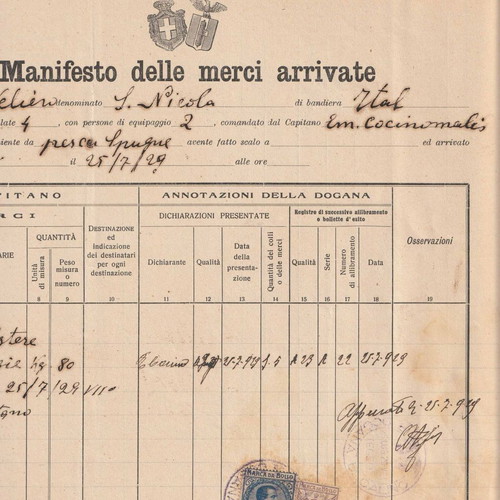 Manifesto delle merci arrivate
denominato S. Nicola di bandiera Ital
late 4, con persone di equipaggio 2, comandato dal Capitano Em. Cocinomalis
iente da pesca Spugne avente fatto scalo a ed arrivato
il 25/7/29 alle ore
PITANO ANNOTAZIONI DELLA DOGANA
RCI
DICHIARAZIONI PRESENTATE
Registro di successivo allibramento o bollette d'esito
ARIE
QUANTITÀ
Unità di misura
Peso misura o numero
Destinazione ed indicazione dei destinatari per ogni destinazione
Dichiarante
Qualità
Data della presentazione
Quantità dei colli o delle merci
Qualità
Serie
Numero di allibramento
Data
Osservazioni
8 9 10 11 12 13 14 15 16 17 18 19
stere
Kg 80 25-7-929 A 23 A 22 25-7-929
25/7/29
25-7-929
MARCA DA BOLLO